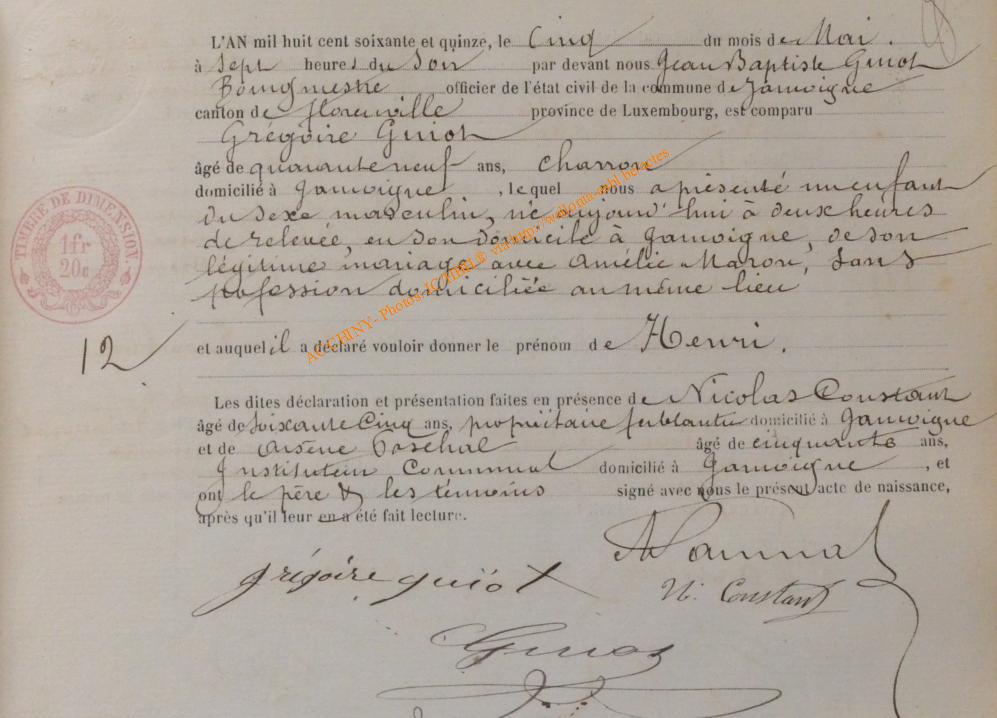 L'AN mil huit cent soixante et quinze, le Cinq du mois de Mai.
à Sept heures du Soir par devant nous Jean Baptiste Guiot
Bourgmestre officier de l'état civil de la commune de Jamoigne
canton de Florenville province de Luxembourg, est comparu
Grégoire Guiot
âgé de quarante neuf ans, charron
domicilié à Jamoigne, lequel nous a présenté un enfant
du sexe masculin, né aujourd'hui à deux heures
de relevée, en son domicile à Jamoigne, de son
légitime mariage avec Amélie Maron, Sans
profession domiciliée au même lieu
TIMBRE DE DIMENSION
1fr
20c
12
et auquel il a déclaré vouloir donner le prénom de Henri.
Les dites déclaration et présentation faites en présence de Nicolas Constant
âgé de Soixante Cinq ans, propriétaire ferblantier domicilié à Jamoigne
et de Arsène âgé de cinquante ans,
Instituteur Communal domicilié à Jamoigne, et
ont le père & les témoins signé avec nous le présent acte de naissance,
après qu'il leur en a été fait lecture.
grégoire guiot
N. Constant
Guiot
AC CHINY - Photos: ICTHELS® via http://wallonia-mbl.be/actes